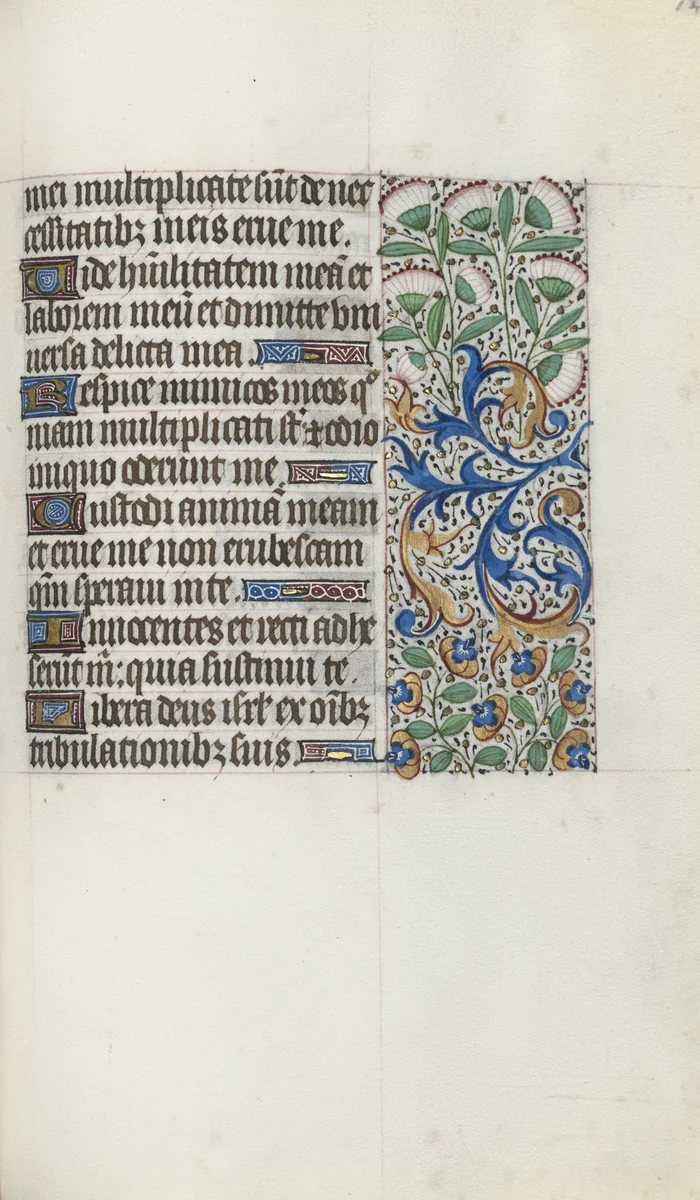 mei multiplicate sūt de nec
cessitatibꝫ meis erue me.
Vide hūilitatem meā et
laborem meū et dimitte vni
uersa delicta mea.
Respice inimicos meos qº
niam multiplicati st̄ ⁊ odio
iniquo oderunt me.
Custodi animā meam
et erue me non erubescam
qm̄ speraui in te.
Innocentes et recti adhe
serūt m̄: quia sustinui te.
Libera deus isrl̄ ex oīb̄ꝫ
tribulationibꝫ suis.